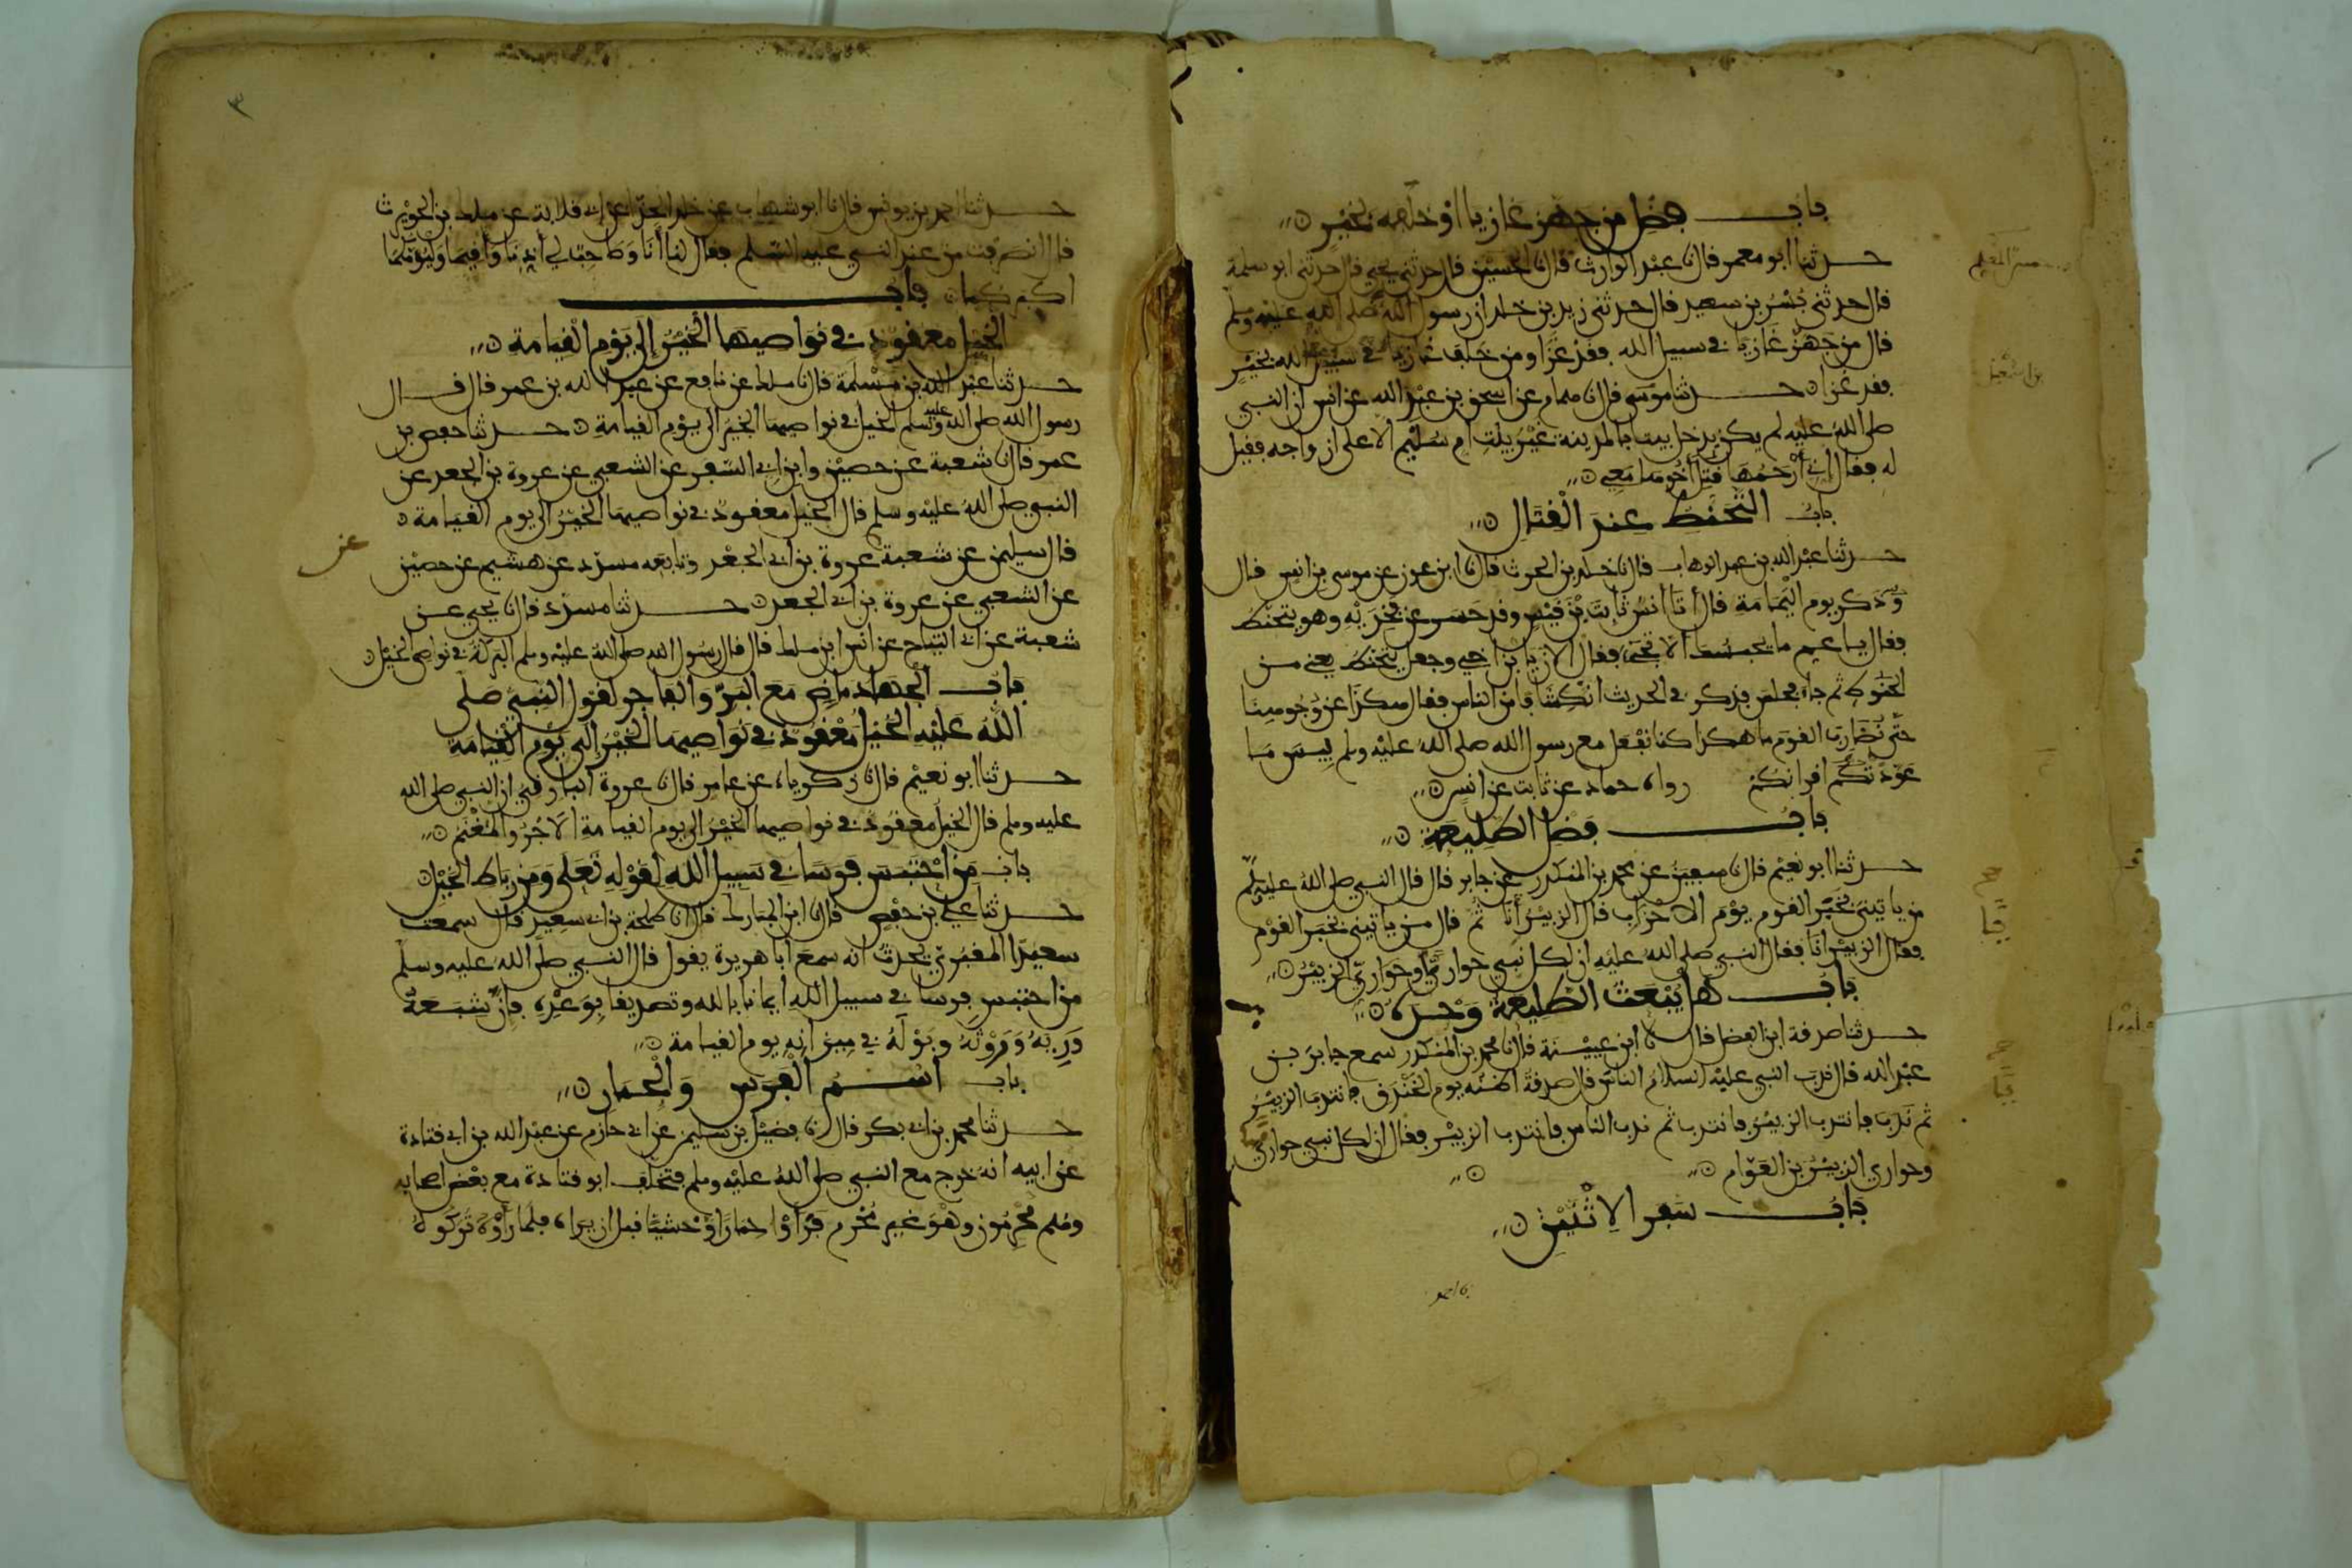 باب فضل من جهز غازيا او خلفه بخير
حدثنا ابو معمر قال نا عبد الوارث قال نا الحسين قال حدثني يحيى قال حدثني ابو سلمة
قال حدثني بُسْرُ بن سعيد قال حدثني زيد بن خلد ان رسول الله صلى الله عليه وسلم
قال من جهز غازيا في سبيل الله فقد غزا ومن خلف غازيا في سبيل الله بخير
فقد غزا حدثنا موسى قال نا همام عن اسحق بن عبد الله عن انس ان النبي
صلى الله عليه لم يكن يدخل بيتا بالمدينة غير بيت ام سليم الا على ازواجه فقيل
له فقال اني أرحمها قتل أخوها معي
باب التحنط عند القتال
حدثنا عبد الله بن عبد الوهاب قال نا خلد بن الحرث قال نا ابن عون عن موسى بن انس قال
وذكر يوم اليمامة قال أتا أنس ثابت بن قيس وقد حسر عن فخذيه وهو يتحنط
فقال يا عم ما يحبسك الا تجي فقال الان يا بن اخي وجعل يتحنط يعني من
الحنوط ثم جاء فجلس فذكر في الحديث انكشافا من الناس فقال هكذا عن وجوهنا
حتى نضارب القوم ما هكذا كنا نفعل مع رسول الله صلى الله عليه وسلم ليس ما
عودتكم اقرانكم رواه حماد عن ثابت عن انس
باب فضل الطليعة
حدثنا ابو نعيم قال نا سفين عن محمد بن المنكدر عن جابر قال قال النبي صلى الله عليه وسلم
من ياتيني بخبر القوم يوم الاحزاب قال الزبير أنا ثم قال من ياتيني بخبر القوم
فقال الزبير انا فقال النبي صلى الله عليه ان لكل نبي حواريا وحواري الزبير
باب هل يبعث الطليعة وحده
حدثنا صدقة ابن الفضل قال نا ابن عيينة قال نا محمد بن المنكدر سمع جابر بن
عبد الله قال ندب النبي عليه السلام الناس قال صدقة اظنه يوم الخندق فانتدب الزبير
ثم ندب فانتدب الزبير فانتدب ثم ندب الناس فانتدب الزبير فقال ان لكل نبي حواري
وحواري الزبير بن العوام
باب سفر الاثنين
٣
حدثنا احمد بن يونس قال نا ابو شهاب عن خلد الحذاء عن ابي قلابة عن ملك بن الحويرث
قال انصرفت من عند النبي عليه السلم فقال لنا أنا وصاحب لي أذنا وأقيما وليؤمكما
اكبركما باب
الخيل معقود في نواصيها الخير إلى يوم القيامة
حدثنا عبد الله بن مسلمة قال نا ملك عن نافع عن عبد الله بن عمر قال قال
رسول الله صلى الله عليه وسلم الخيل في نواصيها الخير الى يوم القيامة حدثنا حفص بن
عمر قال نا شعبة عن حصين وابن ابي السفر عن الشعبي عن عروة بن الجعد عن
النبي صلى الله عليه وسلم قال الخيل معقود في نواصيها الخير الى يوم القيامة
قال سليمن عن شعبة عروة بن ابي الجعد وتابعه مسدد عن هشيم عن حصين
عن
عن الشعبي عن عروة بن ابي الجعد حدثنا مسدد قال نا يحيى عن
شعبة عن ابي التياح عن انس ابن ملك قال قال رسول الله صلى الله عليه وسلم البركة في نواصي الخيل
باب الجهاد ماض مع البر والفاجر لقول النبي صلى
الله عليه الخيل معقود في نواصيها الخير إلى يوم القيامة
حدثنا ابو نعيم قال نا زكرياء عن عامر قال نا عروة البارقي ان النبي صلى الله
عليه وسلم قال الخيل معقود في نواصيها الخير الى يوم القيامة الاجر والمغنم
باب من احتبس فرسا في سبيل الله لقوله تعلى ومن رباط الخيل
حدثنا علي بن حفص قال نا ابن المبارك قال انا طلحة بن ابي سعيد قال سمعت
سعيدا المقبري يحدث انه سمع أبا هريرة يقول قال النبي صلى الله عليه وسلم
من احتبس فرسا في سبيل الله ايمانا بالله وتصديقا بوعده فإن شبعه
وريه وروثه وبوله في ميزانه يوم القيامة
باب اسم الفرس والحمار
حدثنا محمد بن ابي بكر قال نا فضيل بن سليمن عن ابي حازم عن عبد الله بن ابي قتادة
عن ابيه انه خرج مع النبي صلى الله عليه وسلم فتخلف ابو قتادة مع بعض اصحابه
وهم محرمون وهو غير محرم فرأوا حمارا وحشيا قبل ان يراه فلما رأوه تركوه